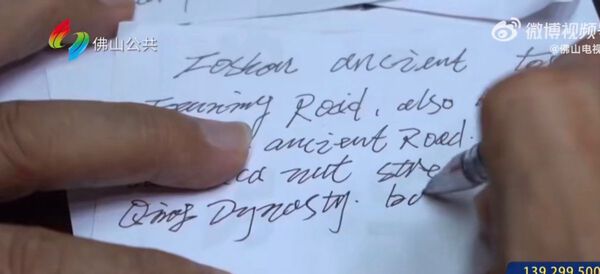 佛山公共
微博视频号
@佛山电视
Foshan ancient
Road, also
ancient Road.
not stre
Qing Dynasty. bo
139 299 500